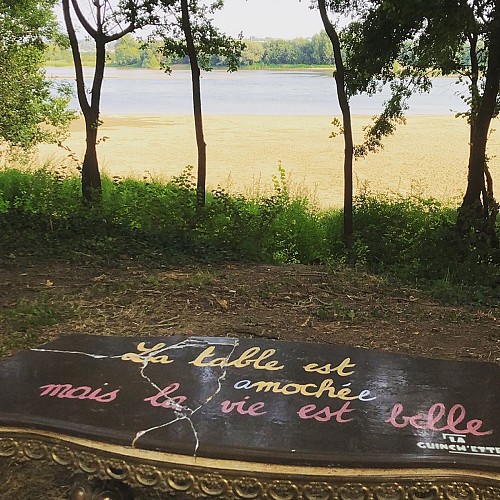 La table est
amochée
mais la vie est belle
LA
GUINCH'ETTE